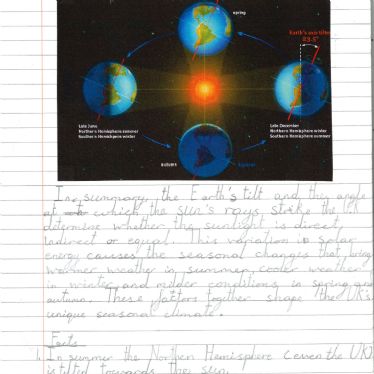 spring
Earth's axis tilts
23.5°
Late June
Northern Hemisphere summer
Southern Hemisphere winter
Late December
Northern Hemisphere winter
Southern Hemisphere summer
autumn
In summary, the Earth's tilt and the angle
at which the sun's rays strike the UK
determine whether the sunlight is direct,
indirect or equal. This variation in solar
energy causes the seasonal changes that bring
warmer weather in summer, cooler weather
in winter and milder conditions in spring and
autumn. These factors together shape the UK's
unique seasonal climate.
Facts
In summer the Northern Hemisphere (even the UK)
is tilted towards the sun.